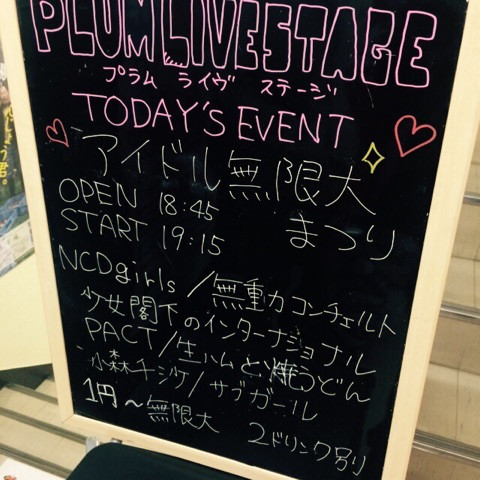 PLUM LIVE STAGE
プラム ライヴ ステージ
TODAY'S EVENT
アイドル無限大
まつり
OPEN 18:45
START 19:15
NCDgirls/無重力コンチェルト
少女閣下のインターナショナル
PACT/生ハムと焼うどん
小森チヒケ/サブガール
1円～無限大 2ドリンク別
う君。